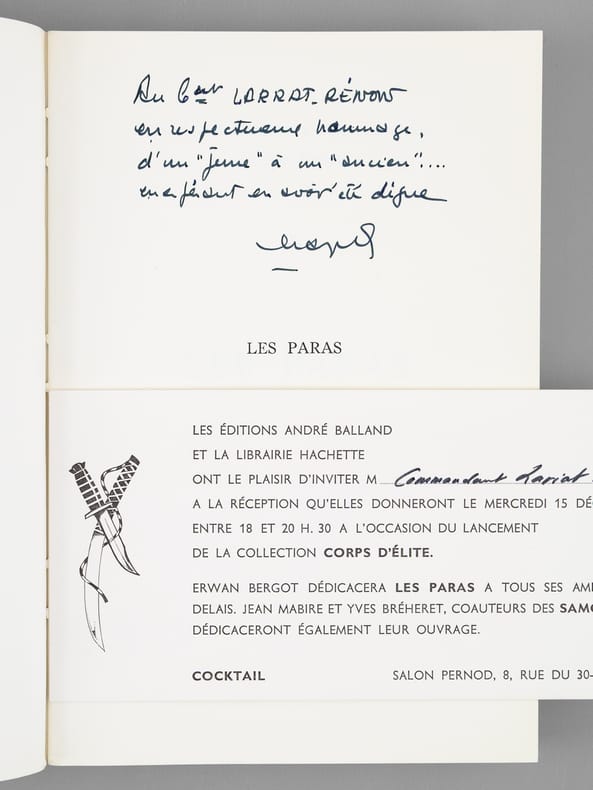 Au Cmt LARRAT-RÉNON
en respectueux hommage,
d'un "jeune" à un "ancien"....
en espérant en avoir été digne
LES PARAS
LES ÉDITIONS ANDRÉ BALLAND
ET LA LIBRAIRIE HACHETTE
ONT LE PLAISIR D'INVITER M Commandant Lariat
A LA RÉCEPTION QU'ELLES DONNERONT LE MERCREDI 15 DÉ
ENTRE 18 ET 20 H. 30 A L'OCCASION DU LANCEMENT
DE LA COLLECTION CORPS D'ÉLITE.
ERWAN BERGOT DÉDICACERA LES PARAS A TOUS SES AMI
DELAIS. JEAN MABIRE ET YVES BRÉHERET, COAUTEURS DES SAMO
DÉDICACERONT ÉGALEMENT LEUR OUVRAGE.
COCKTAIL SALON PERNOD, 8, RUE DU 30-